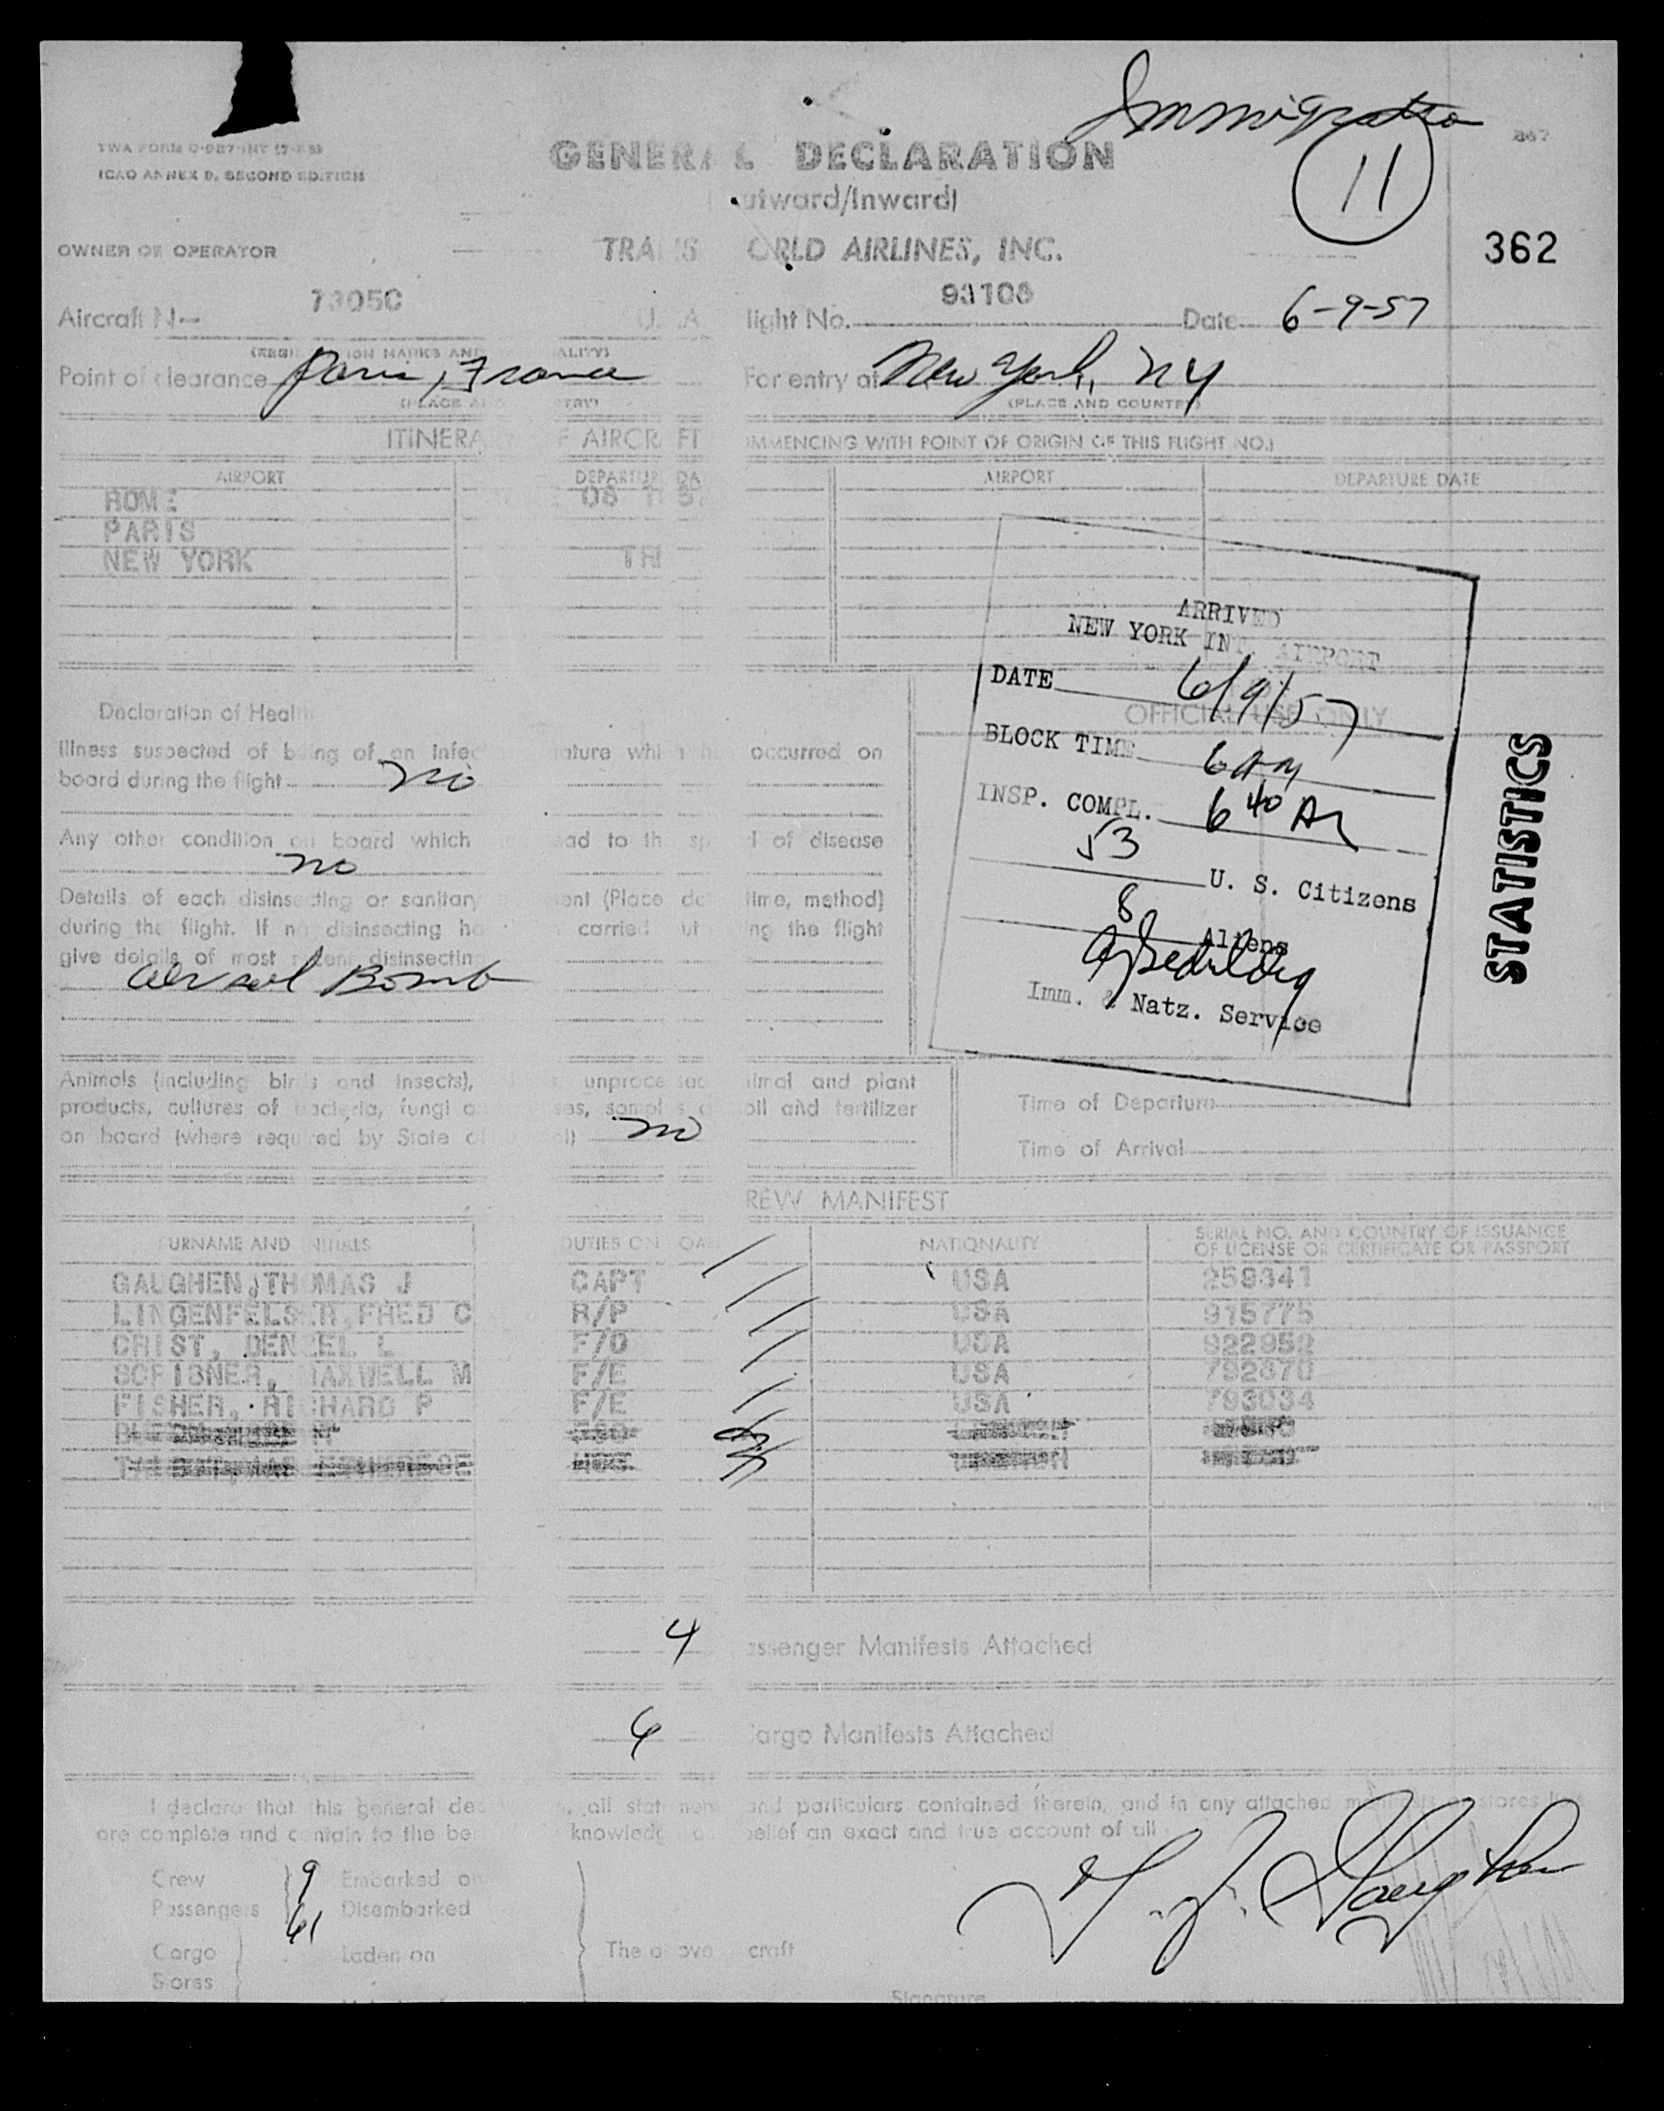 Immigration
11
362
TWA FORM
ICAO ANNEX 9, SECOND EDITION
GENERAL DECLARATION
utward/Inward)
OWNER OR OPERATOR TRANS ORLD AIRLINES, INC.
Aircraft N— light No. Date 6-9-57
Point of clearance Paris, France For entry at New York, NY
(PLACE AND COUNTRY)
ITINERA F AIRCRAFT OMMENCING WITH POINT OF ORIGIN OF THIS FLIGHT NO.)
AIRPORT DEPARTURE DA AIRPORT DEPARTURE DATE
ROME
PARIS
NEW YORK
ARRIVED
NEW YORK INT. AIRPORT
DATE 6/9/57
BLOCK TIME 6 AM
INSP. COMPL. 6 40 AM
53 U. S. Citizens
8 Aliens
Imm. & Natz. Service
OFFICIAL USE ONLY
STATISTICS
Declaration of Heal
Illness suspected of being of an infec ature whi h h occurred on
board during the flight no
Any other condition on board which ead to th sp d of disease
no
Details of each disinsecting or sanitary ent (Place da time, method)
during the flight. If no disinsecting ha carried ut ing the flight
give details of most recent disinsecting
Aersol Bomb
Animals (including birds and insects), unprocessed imal and plant
products, cultures of bacteria, fungi o ses, samples o oil and fertilizer
on board (where required by State of l) no
Time of Departure
Time of Arrival
REW MANIFEST
URNAME AND INITIALS DUTIES ON OA NATIONALITY SERIAL NO. AND COUNTRY OF ISSUANCE
OF LICENSE OR CERTIFICATE OR PASSPORT
GAUGHEN, THOMAS J CAPT USA 259341
LINGENFELSER, FRED C R/P USA 915775
CRIST, DENZEL L F/O USA 922952
SCRIBNER, MAXWELL M F/E USA 792670
FISHER, RICHARD P F/E USA 793034
4 assenger Manifests Attached
Cargo Manifests Attached
I declare that this general dec , all statemen and particulars contained therein, and in any attached
are complete and contain to the be knowledg belief an exact and true account of all
Crew 9 Embarked on
Passengers 61 Disembarked
Cargo Laden on The above craft
Stores
T. J. Gaughen
Signature